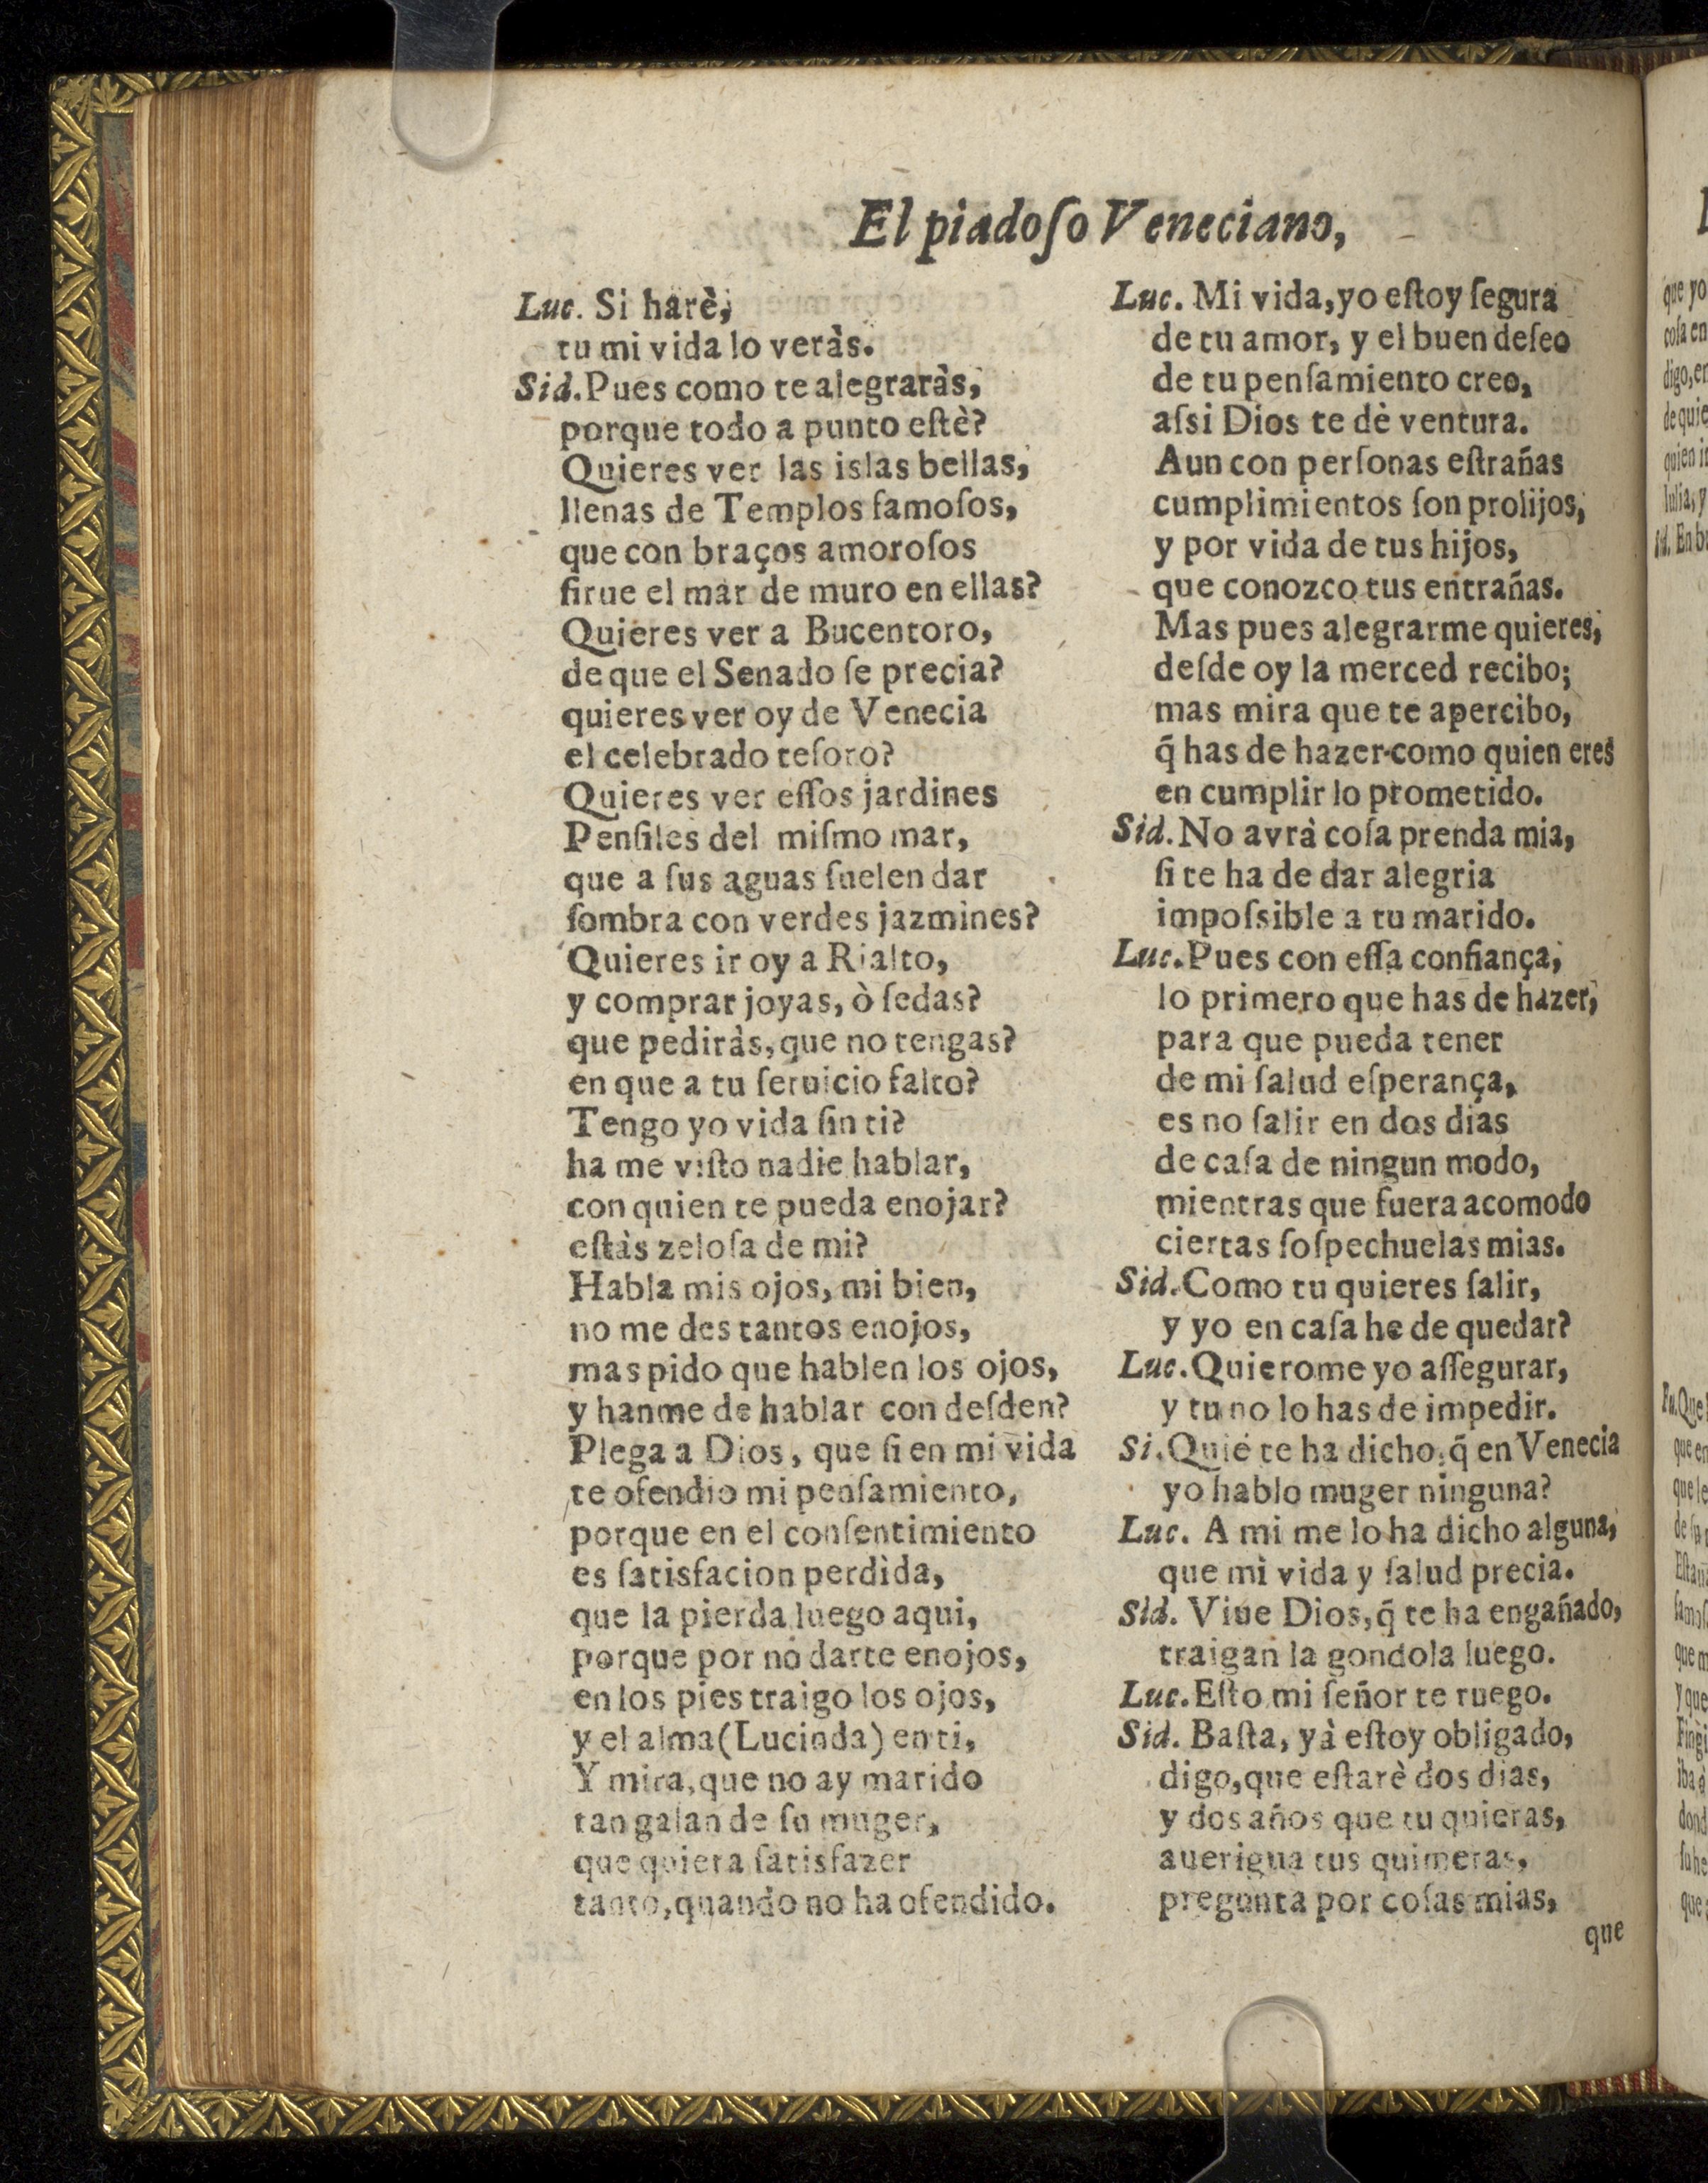 El piadoſo Veneciano,
Luc. Si harè,
tu mi vida lo veràs.
Sid. Pues como te alegraràs,
porque todo a punto eſtè?
Quieres ver las islas bellas,
llenas de Templos famoſos,
que con braços amoroſos
ſirue el mar de muro en ellas?
Quieres ver a Bucentoro,
de que el Senado ſe precia?
quieres ver oy de Venecia
el celebrado teſoro?
Quieres ver eſſos jardines
Penſiles del miſmo mar,
que a ſus aguas ſuelen dar
ſombra con verdes jazmines?
Quieres ir oy a Rialto,
y comprar joyas, ò ſedas?
que pediràs, que no tengas?
en que a tu ſeruicio falto?
Tengo yo vida ſin ti?
ha me viſto nadie hablar,
con quien te pueda enojar?
eſtàs zeloſa de mi?
Habla mis ojos, mi bien,
no me des tantos enojos,
mas pido que hablen los ojos,
y hanme de hablar con deſden?
Plega a Dios, que ſi en mi vida
te ofendio mi penſamiento,
porque en el conſentimiento
es ſatisfacion perdida,
que la pierda luego aqui,
porque por no darte enojos,
en los pies traigo los ojos,
y el alma (Lucinda) en ti,
Y mira, que no ay marido
tan galan de ſu muger,
que quiera ſatisfazer
tanto, quando no ha ofendido.
Luc. Mi vida, yo eſtoy ſegura
de tu amor, y el buen deſeo
de tu penſamiento creo,
aſsi Dios te dè ventura.
Aun con perſonas eſtrañas
cumplimientos ſon prolijos,
y por vida de tus hijos,
que conozco tus entrañas.
Mas pues alegrarme quieres,
deſde oy la merced recibo;
mas mira que te apercibo,
q̃ has de hazer como quien eres
en cumplir lo prometido.
Sid. No avrà coſa prenda mia,
ſi te ha de dar alegria
impoſsible a tu marido.
Luc. Pues con eſſa confiança,
lo primero que has de hazer,
para que pueda tener
de mi ſalud eſperança,
es no ſalir en dos dias
de caſa de ningun modo,
mientras que fuera acomodo
ciertas ſoſpechuelas mias.
Sid. Como tu quieres ſalir,
y yo en caſa he de quedar?
Luc. Quierome yo aſſegurar,
y tu no lo has de impedir.
Si. Quiẽ te ha dicho, q̃ en Venecia
yo hablo muger ninguna?
Luc. A mi me lo ha dicho alguna,
que mi vida y ſalud precia.
Sid. Viue Dios, q̃ te ha engañado,
traigan la gondola luego.
Luc. Eſto mi ſeñor te ruego.
Sid. Baſta, yà eſtoy obligado,
digo, que eſtarè dos dias,
y dos años que tu quieras,
auerigua tus quimeras,
pregunta por coſas mias,
que
que yo
coſa en
digo, en
de quie
quien
Iulia, y
Que
que en
que le
que m
y que
Fingi
dond
que